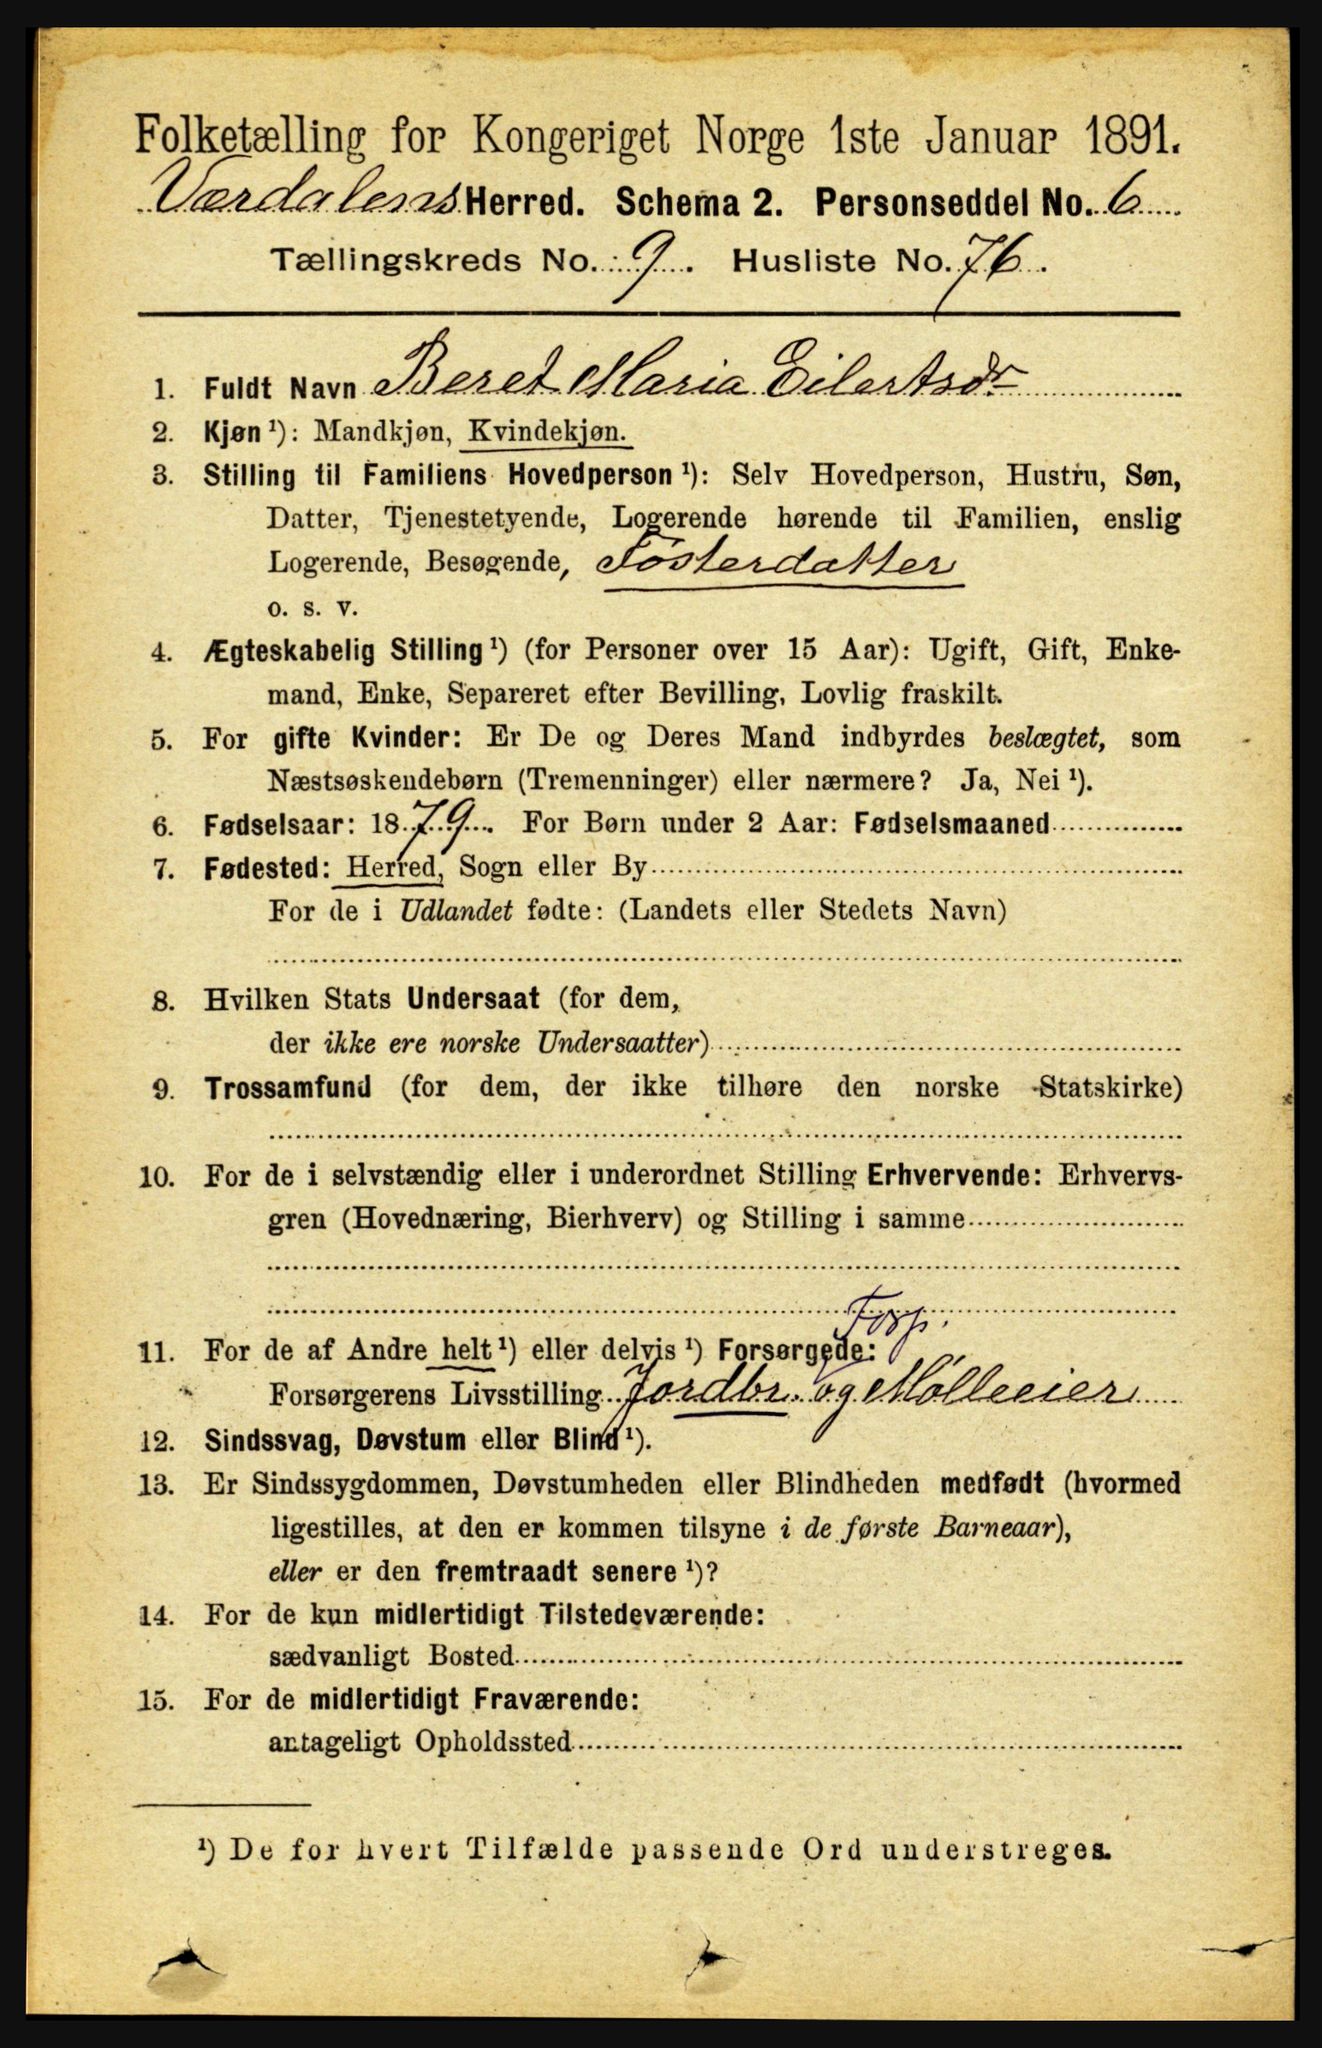 Folketælling for Kongeriget Norge 1ste Januar 1891.
Værdalens Herred. Schema 2. Personseddel No. 6
Tællingskreds No. 9. Husliste No. 76.
1. Fuldt Navn Beret Maria Eilertsdr
2. Kjøn ¹): Mandkjøn, Kvindekjøn.
3. Stilling til Familiens Hovedperson ¹): Selv Hovedperson, Hustru, Søn,
Datter, Tjenestetyende, Logerende hørende til Familien, enslig
Logerende, Besøgende, Fösterdatter
o. s. v.
4. Ægteskabelig Stilling ¹) (for Personer over 15 Aar): Ugift, Gift, Enke-
mand, Enke, Separeret efter Bevilling, Lovlig fraskilt.
5. For gifte Kvinder: Er De og Deres Mand indbyrdes beslægtet, som
Næstsøskendebørn (Tremenninger) eller nærmere? Ja, Nei ¹).
6. Fødselsaar: 1879. For Børn under 2 Aar: Fødselsmaaned
7. Fødested: Herred, Sogn eller By
For de i Udlandet fødte: (Landets eller Stedets Navn)
8. Hvilken Stats Undersaat (for dem,
der ikke ere norske Undersaatter)
9. Trossamfund (for dem, der ikke tilhøre den norske Statskirke)
10. For de i selvstændig eller i underordnet Stilling Erhvervende: Erhvervs-
gren (Hovednæring, Bierhverv) og Stilling i samme
Forp.
11. For de af Andre helt ¹) eller delvis ¹) Forsørgede:
Forsørgerens Livsstilling Jordbr. og Mölleeier
12. Sindssvag, Døvstum eller Blind ¹).
13. Er Sindssygdommen, Døvstumheden eller Blindheden medfødt (hvormed
ligestilles, at den er kommen tilsyne i de første Barneaar),
eller er den fremtraadt senere ¹)?
14. For de kun midlertidigt Tilstedeværende:
sædvanligt Bosted
15. For de midlertidigt Fraværende:
antageligt Opholdssted
¹) De for hvert Tilfælde passende Ord understreges.